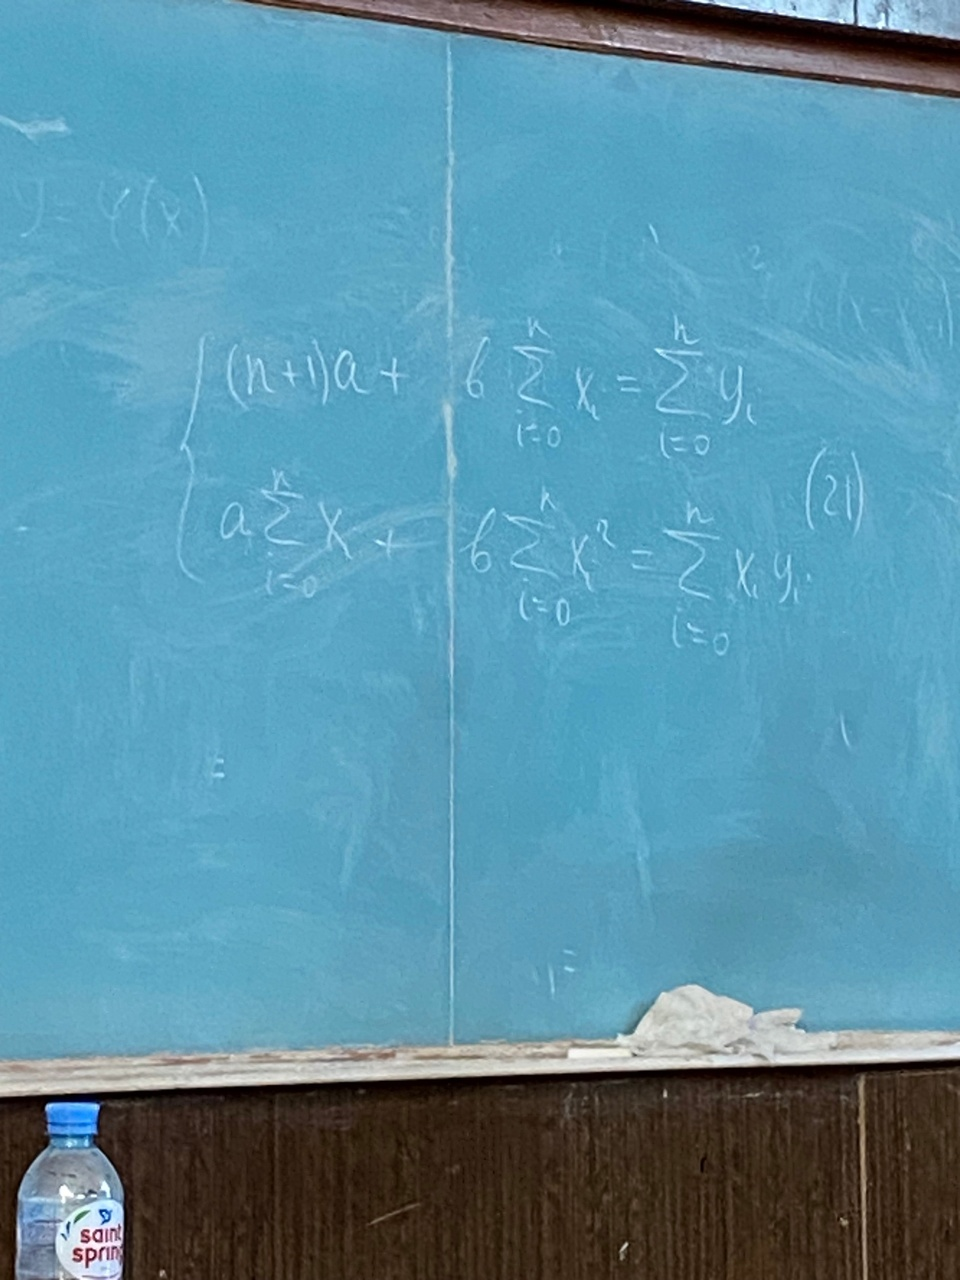 y = φ(x)
(n+1)a + b ∑_{i=0}^{n} x_i = ∑_{i=0}^{n} y_i
a ∑_{i=0}^{n} x + b ∑_{i=0}^{n} x_i^2 = ∑_{i=0}^{n} x_i y_i
(21)
saint
spring